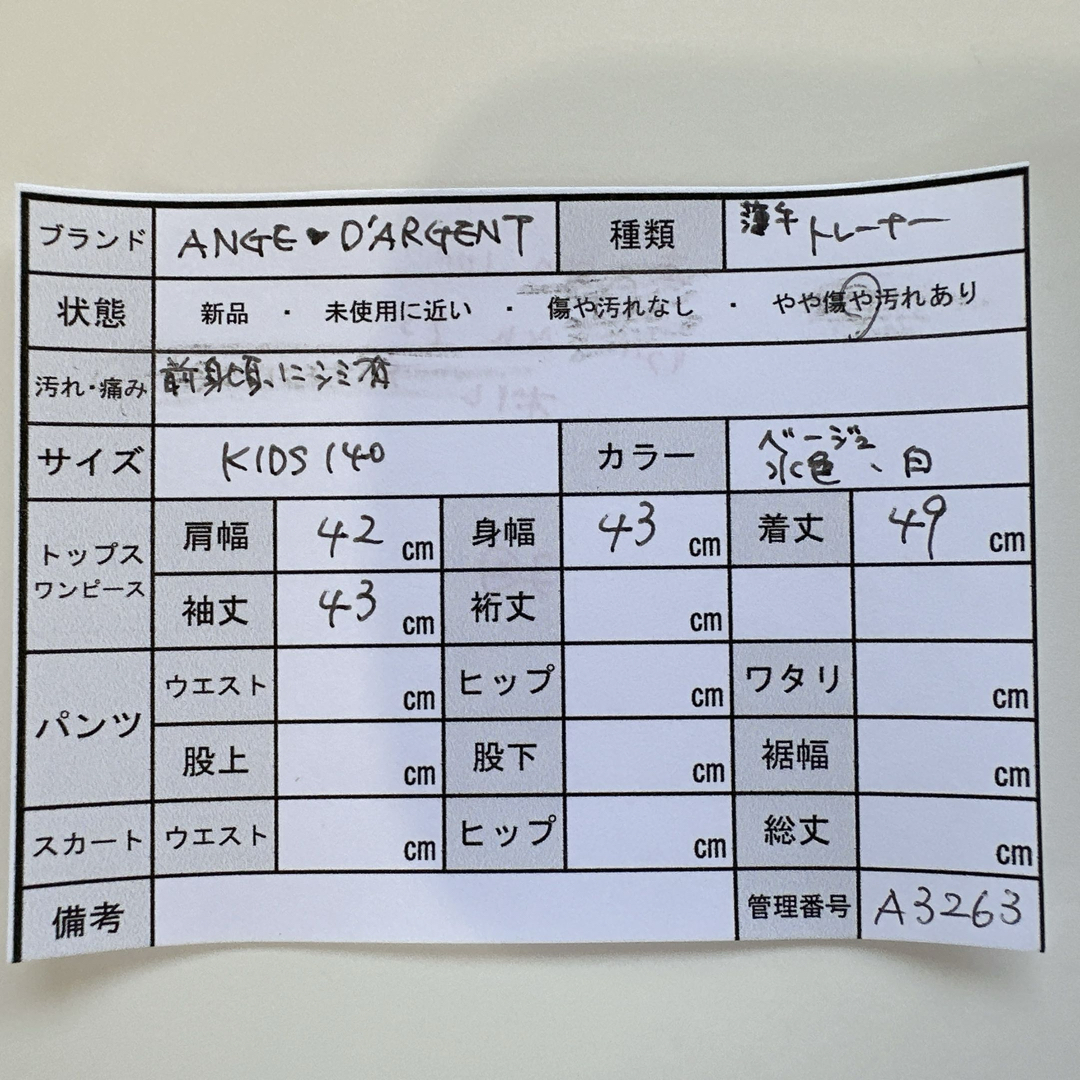 ブランド ANGE♥D'ARGENT 種類 薄手トレーナー
状態 新品 ・ 未使用に近い ・ 傷や汚れなし ・ やや傷や汚れあり
汚れ・痛み 前身頃にシミ有
サイズ KIDS 140 カラー ベージュ
水色、白
トップス
ワンピース
肩幅 42 cm 身幅 43 cm 着丈 49 cm
袖丈 43 cm 裄丈 cm
パンツ
ウエスト cm ヒップ cm ワタリ cm
股上 cm 股下 cm 裾幅 cm
スカート ウエスト cm ヒップ cm 総丈 cm
備考 管理番号 A3263